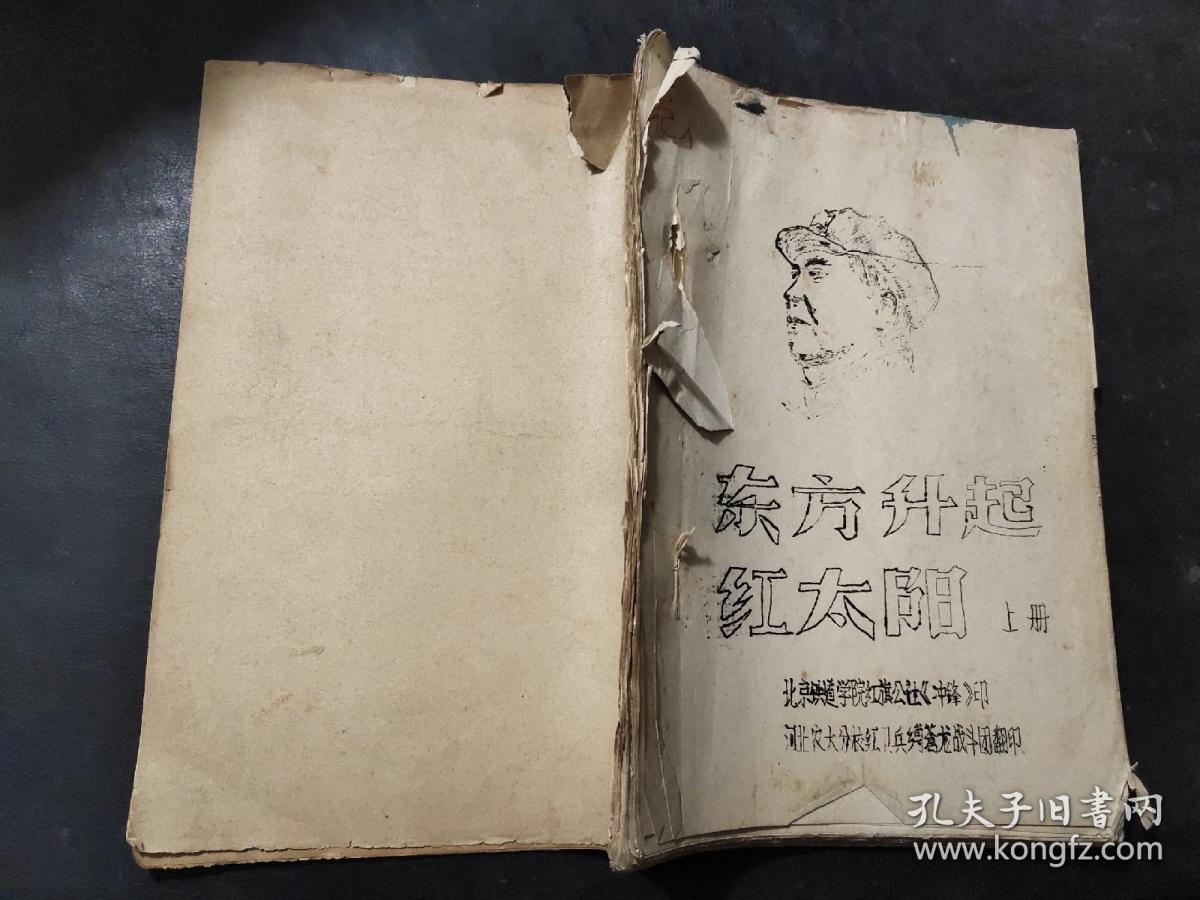 东方升起
红太阳 上册
北京铁道学院红旗公社《冲锋》印
河北农大分校红卫兵缚苍龙战斗团翻印
孔夫子旧书网
www.kongfz.com